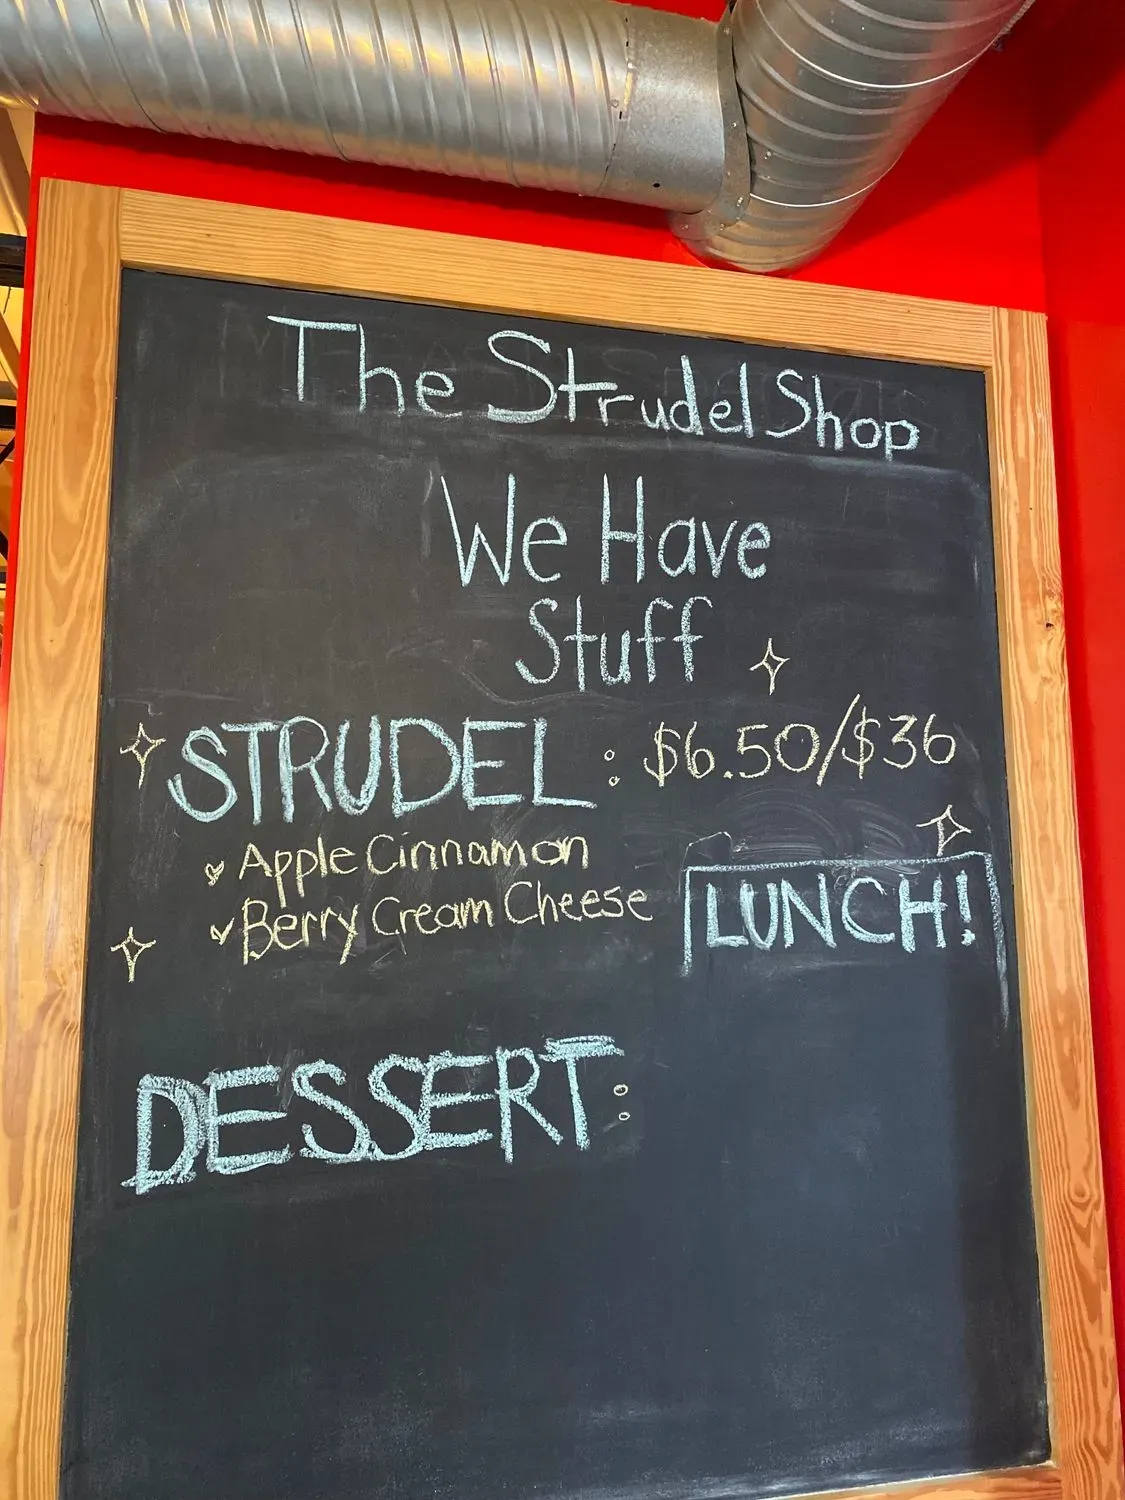 The Strudel Shop
We Have
Stuff
STRUDEL: $6.50/$36
Apple Cinnamon
Berry Cream Cheese
LUNCH!
DESSERT: